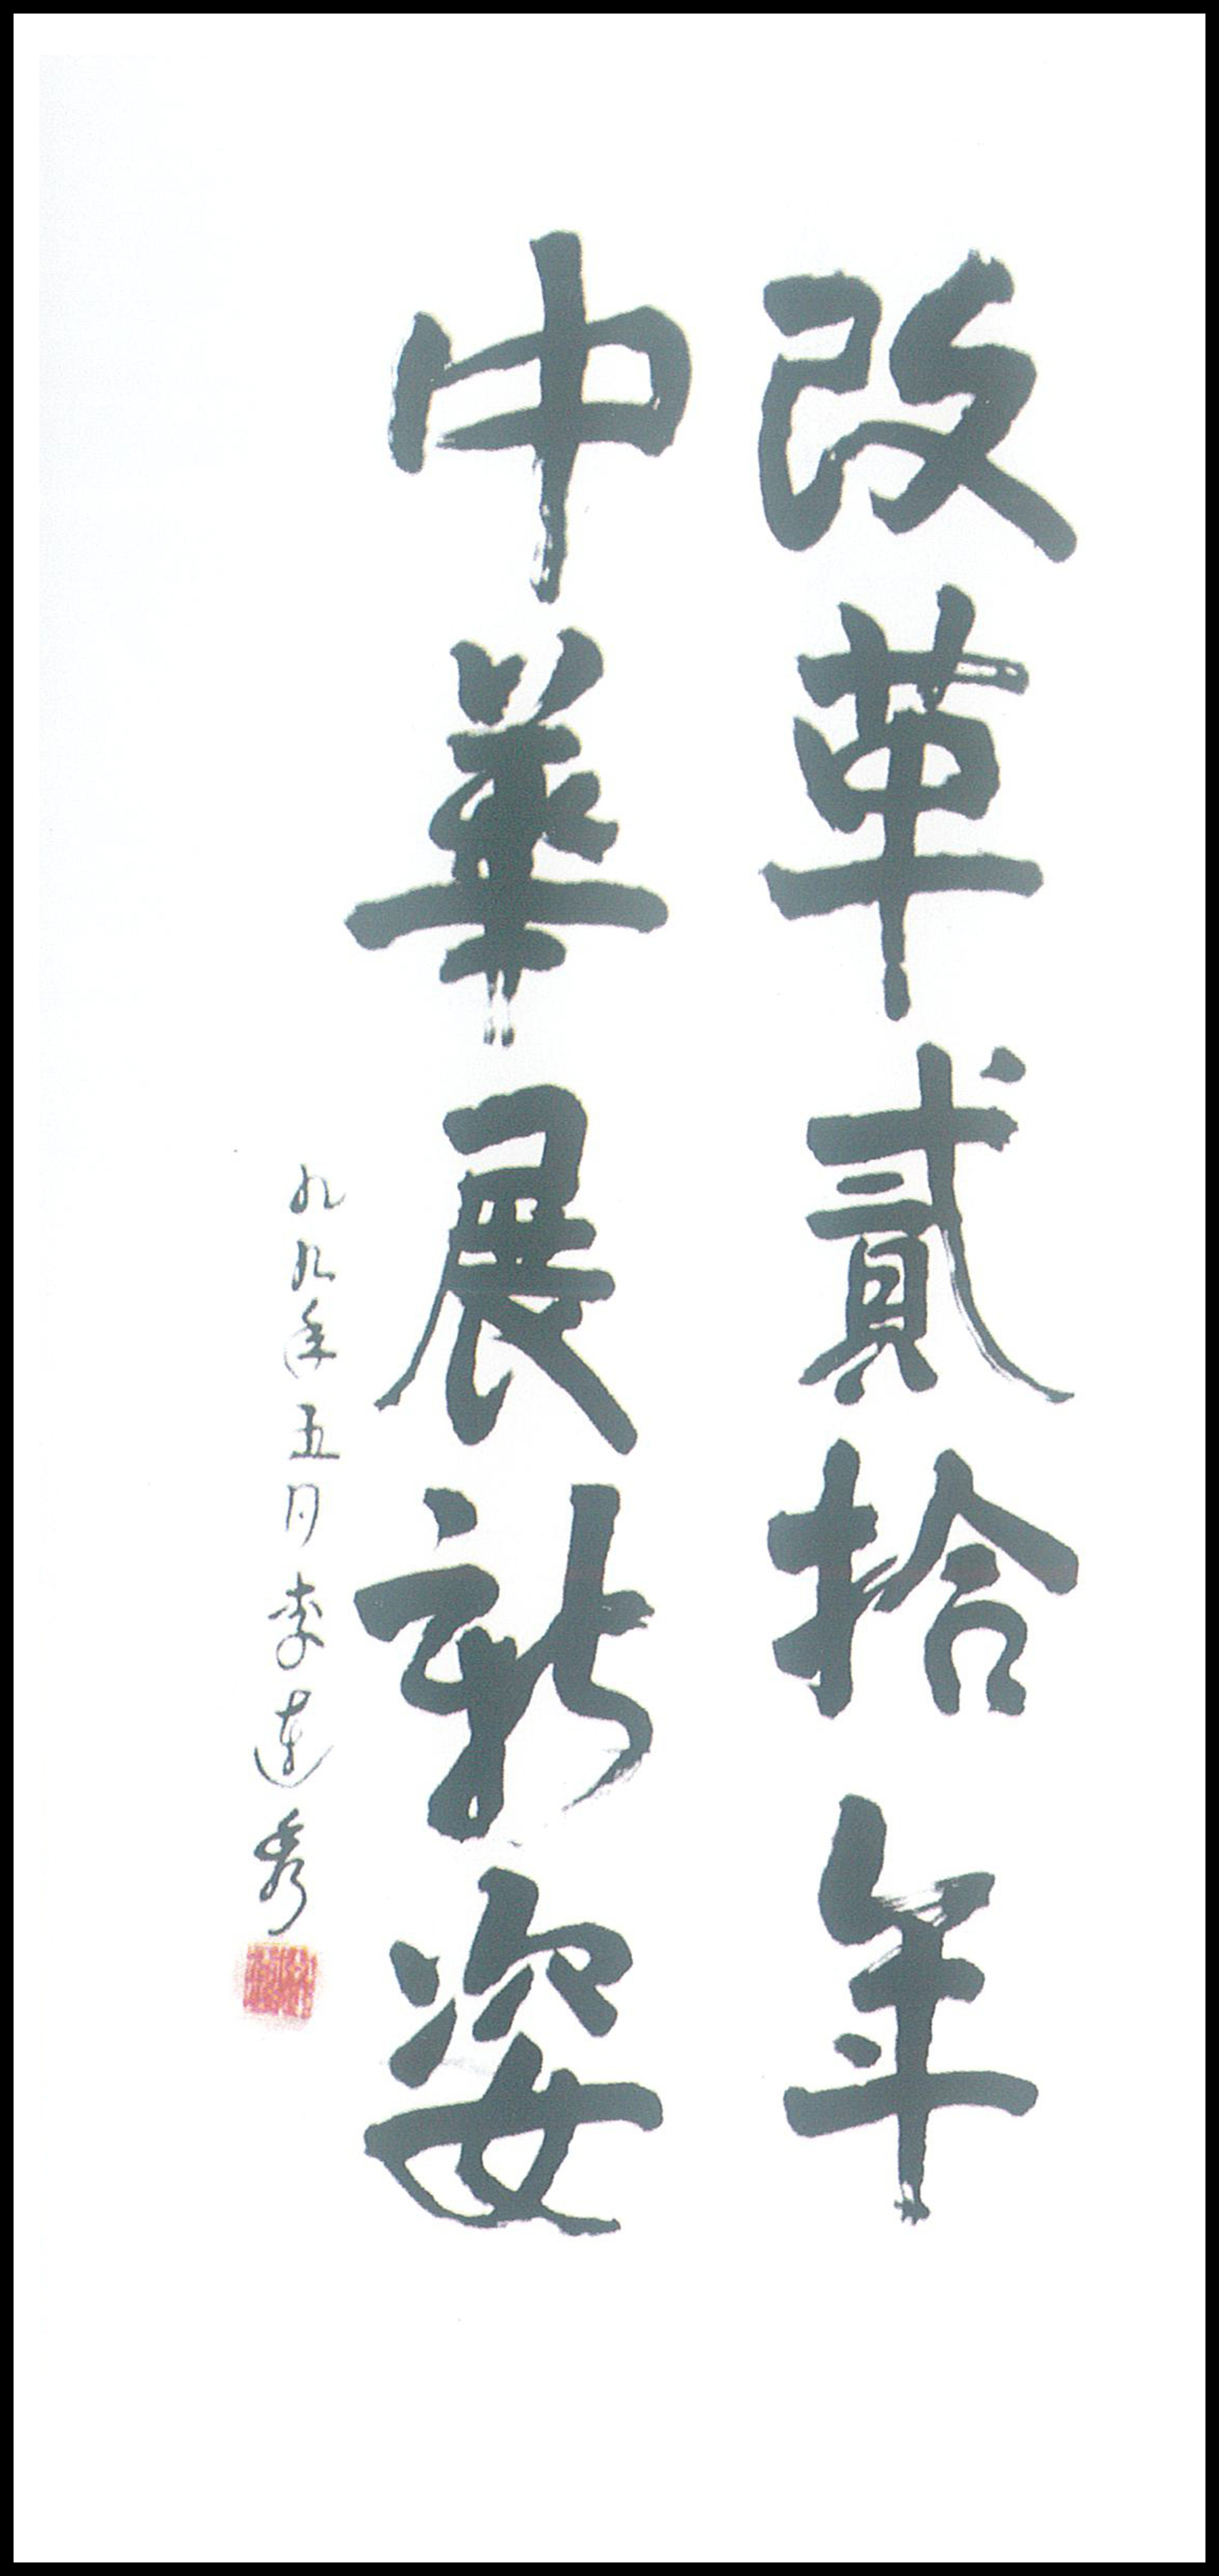 改革貳拾年
中華展新姿
九九年五月李連秀